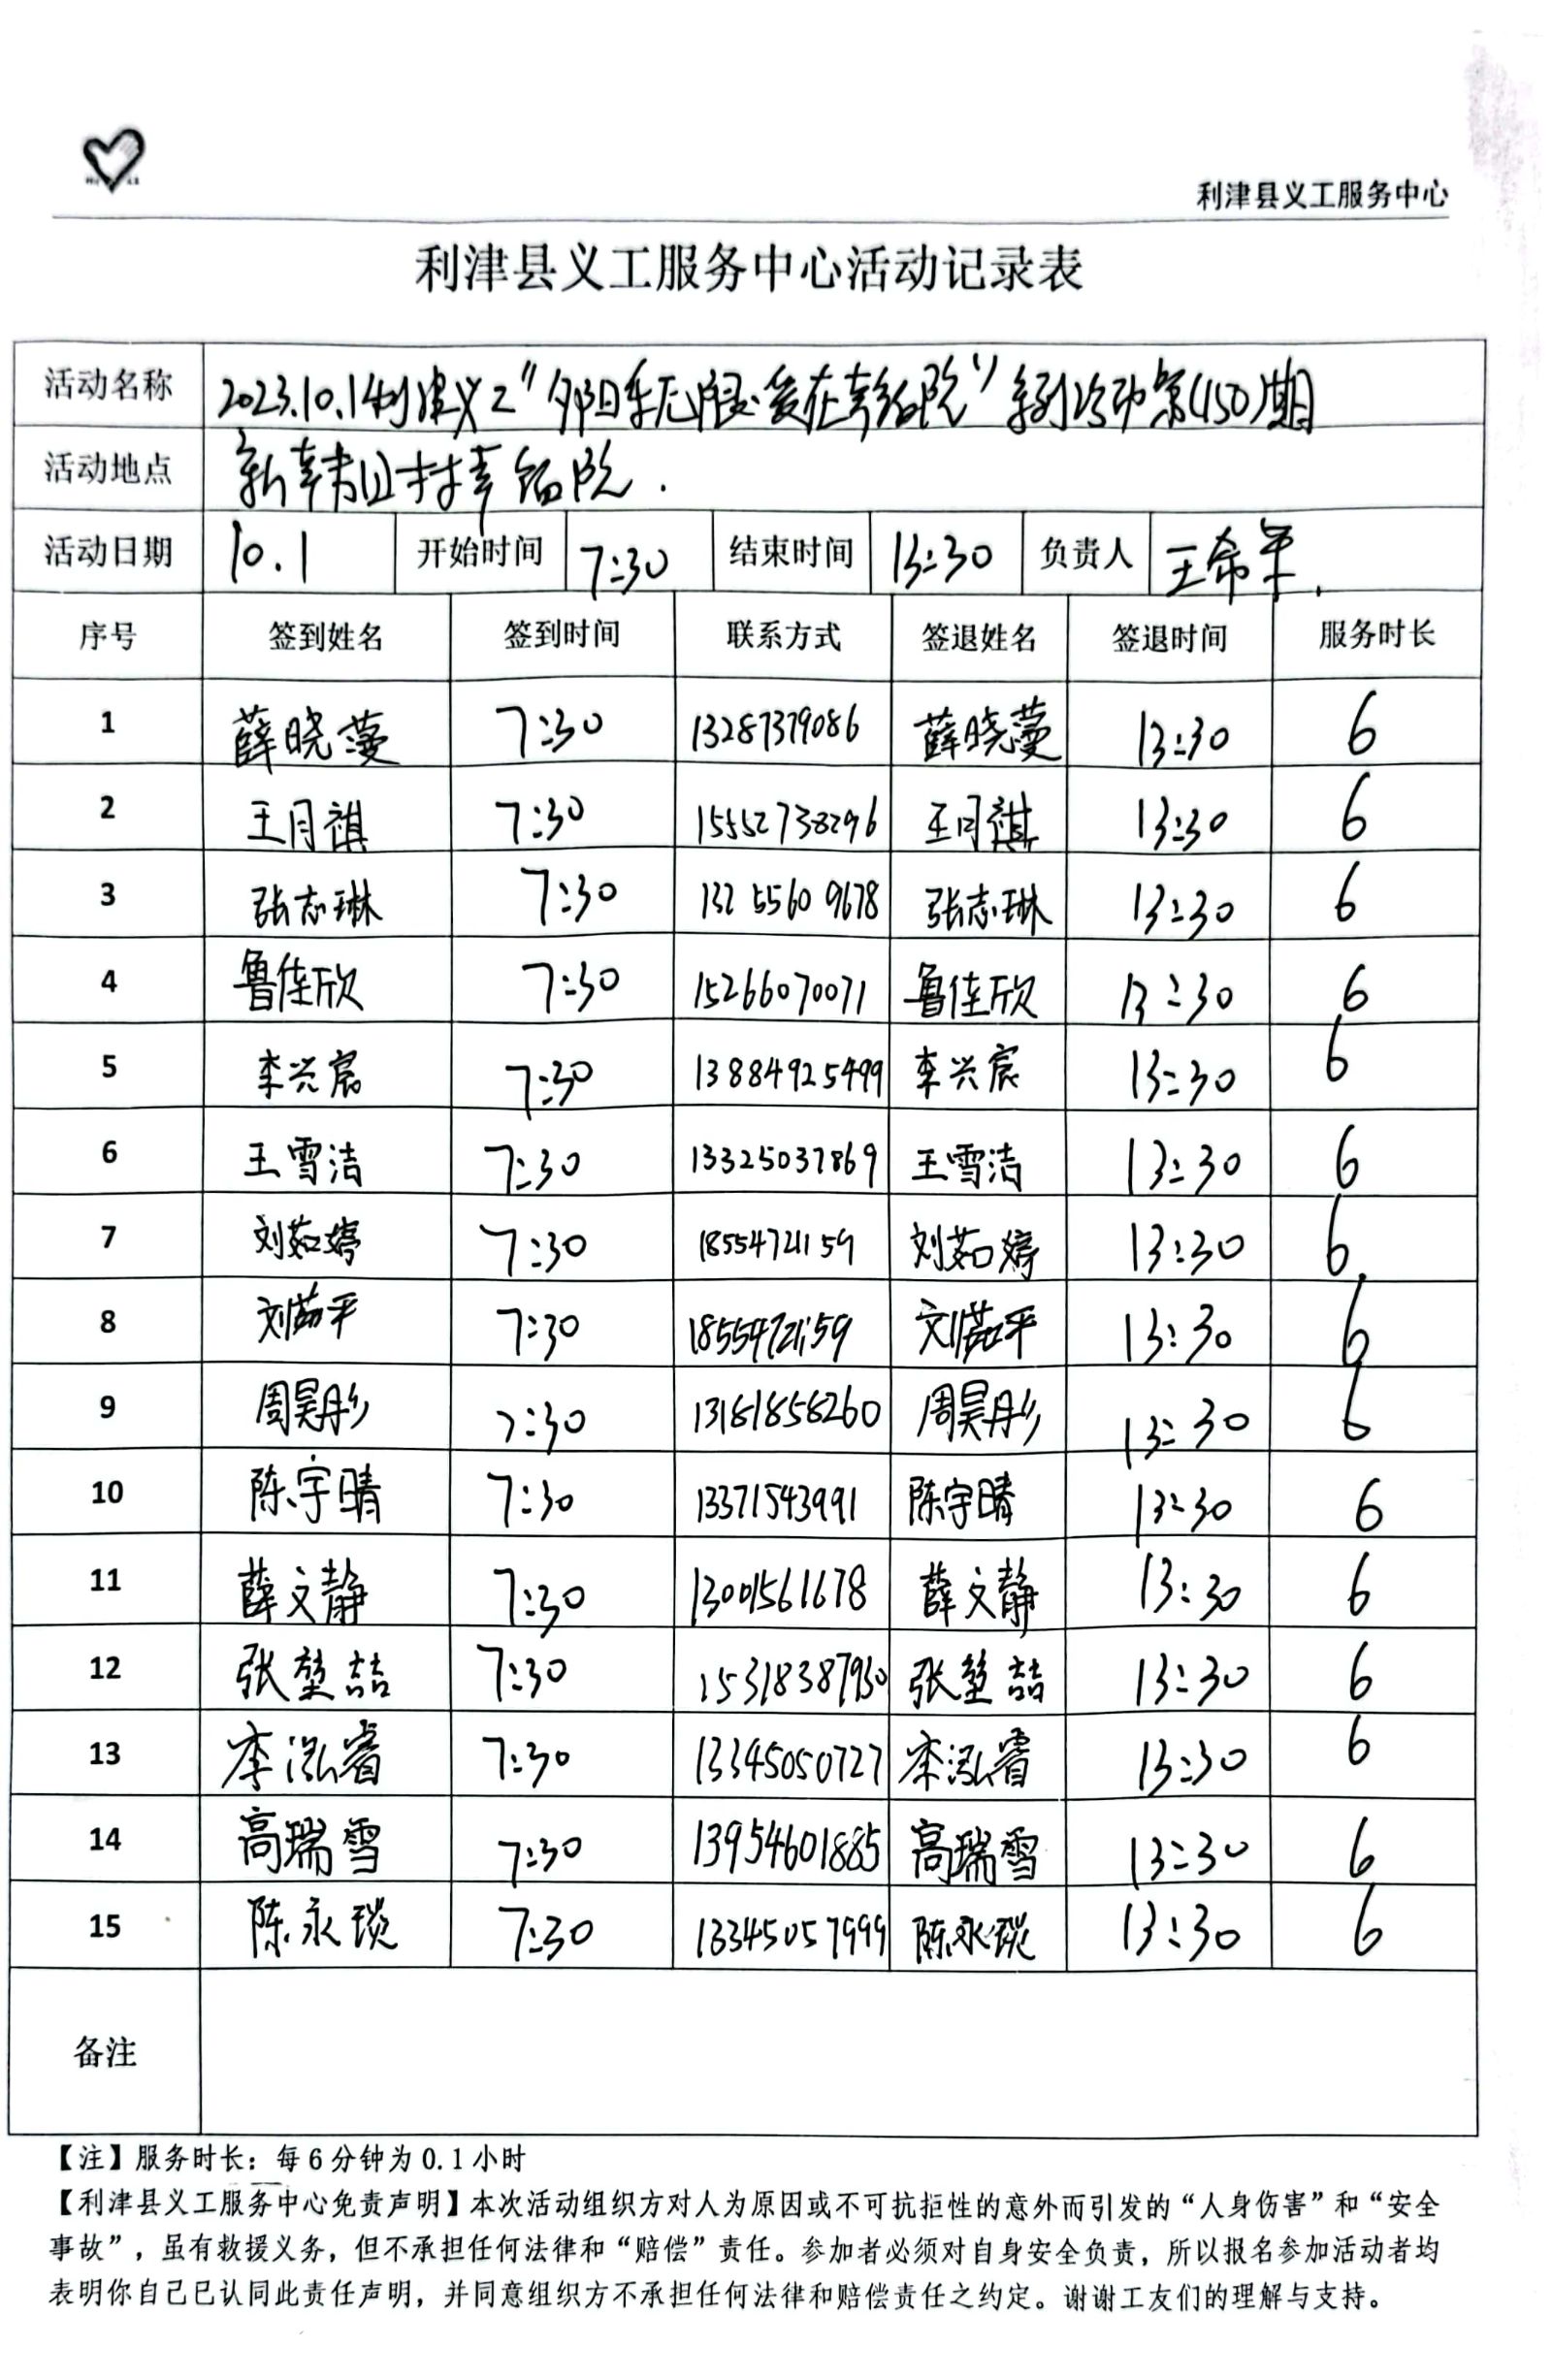 利津县义工服务中心
利津县义工服务中心活动记录表
活动名称 2023.10.1利津义工“夕阳无限 爱在幸福院”系列活动第(150)期
活动地点 新韩田村幸福院.
活动日期 10.1 开始时间 7:30 结束时间 13:30 负责人 王希军
序号 签到姓名 签到时间 联系方式 签退姓名 签退时间 服务时长
1 薛晓蔓 7:30 13287379086 薛晓蔓 13:30 6
2 王月祺 7:30 15552738296 王月祺 13:30 6
3 张志琳 7:30 132 5560 9678 张志琳 13:30 6
4 鲁佳欣 7:30 15266070071 鲁佳欣 13:30 6
5 李兴宸 7:30 13884925499 李兴宸 13:30 6
6 王雪洁 7:30 13325037869 王雪洁 13:30 6
7 刘茹婷 7:30 18554721159 刘茹婷 13:30 6
8 刘茹平 7:30 18554721159 刘茹平 13:30 6
9 周昊彤 7:30 13181858260 周昊彤 13:30 6
10 陈宇晴 7:30 13371543991 陈宇晴 13:30 6
11 薛文静 7:30 13001561678 薛文静 13:30 6
12 张堃喆 7:30 15318387930 张堃喆 13:30 6
13 李泓睿 7:30 13345050727 李泓睿 13:30 6
14 高瑞雪 7:30 13954601885 高瑞雪 13:30 6
15 陈永琰 7:30 13345057999 陈永琰 13:30 6
备注
【注】服务时长：每6分钟为0.1小时
【利津县义工服务中心免责声明】本次活动组织方对人为原因或不可抗拒性的意外而引发的“人身伤害”和“安全
事故”，虽有救援义务，但不承担任何法律和“赔偿”责任。参加者必须对自身安全负责，所以报名参加活动者均
表明你自己已认同此责任声明，并同意组织方不承担任何法律和赔偿责任之约定。谢谢工友们的理解与支持。